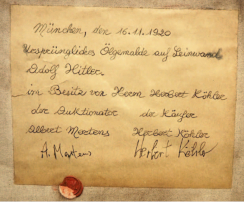 München, den 16.11.1920
Ursprüngliches Ölgemälde auf Leinwand
Adolf Hitler.
im Besitz von Herrn Herbert Köhler
der Auktionator der Käufer
Albert Martens Herbert Köhler
A. Martens Herbert Köhler